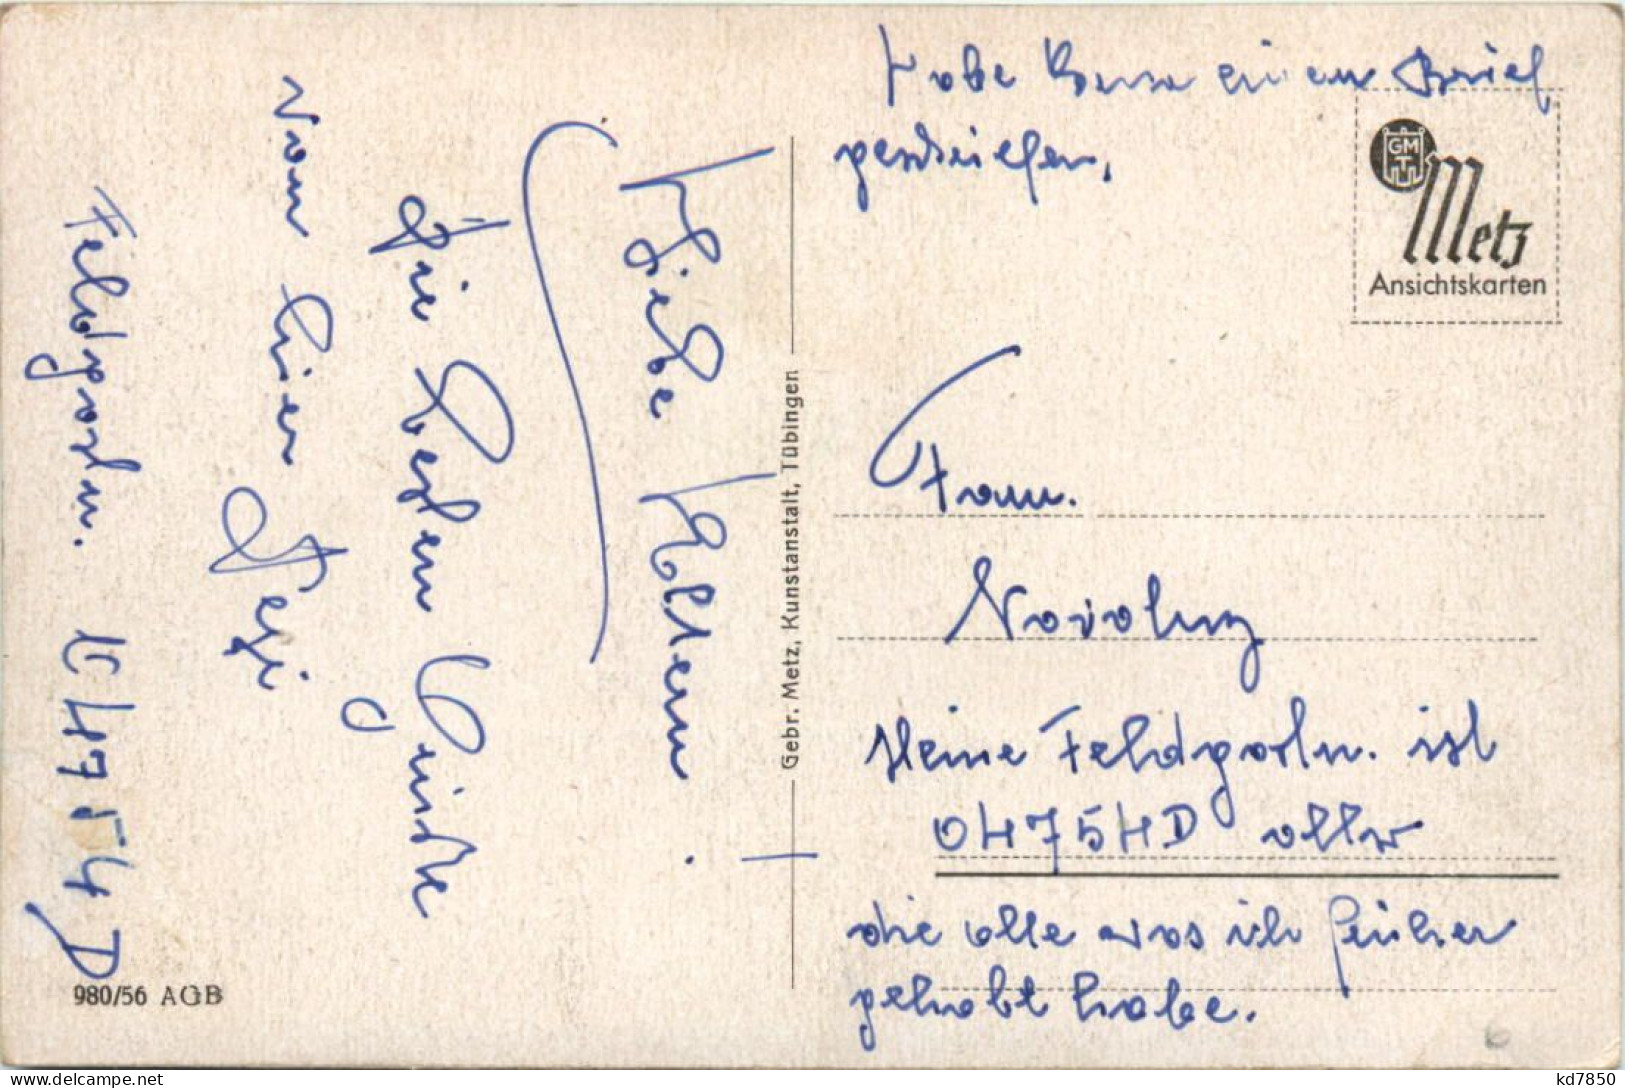 Habe Euch einen Brief
geschrieben,
GMT
Metz
Ansichtskarten
Frau.
Meine Feldpostn. ist
04754D
die alle was ich früher
gehabt habe.
Liebe Eltern
Die besten Grüße
von hier
Feldpostn. 04754D
Gebr. Metz, Kunstanstalt, Tübingen
980/56 AGB
6
kd7850